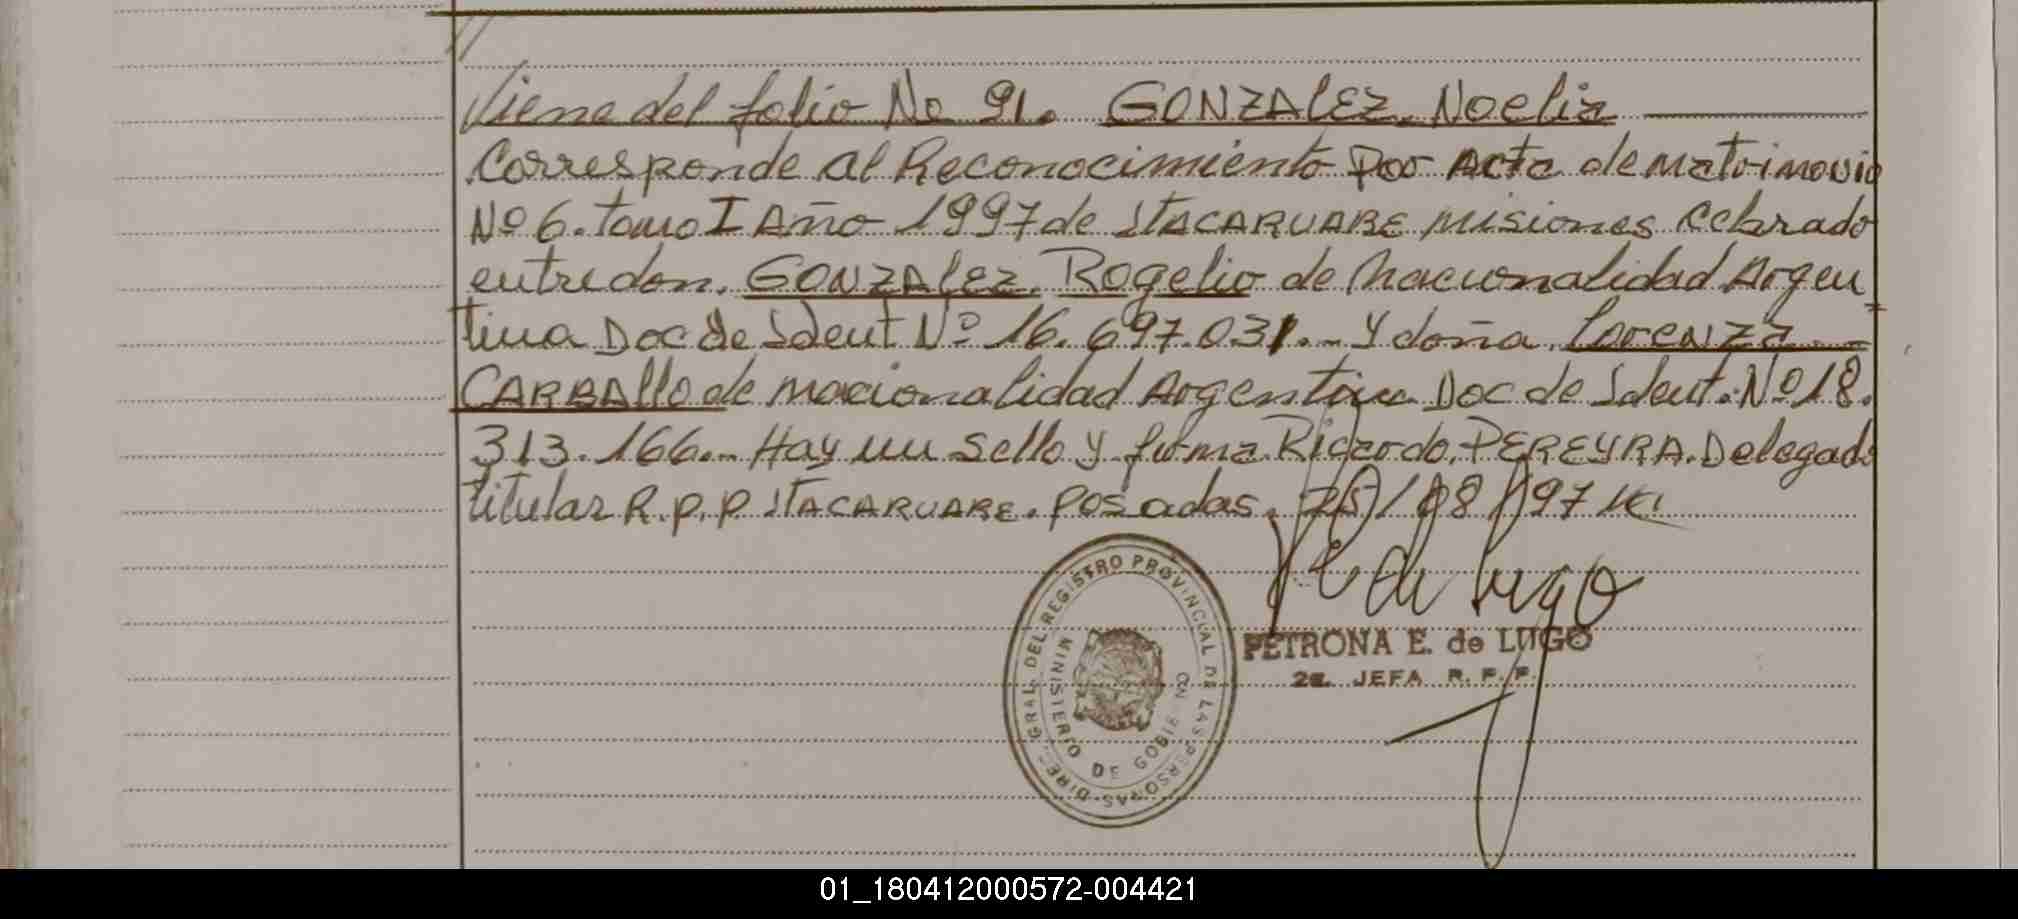 Viene del folio No 91. GONZALEZ, Noelia
Corresponde al Reconocimiento Por Acta de matrimonio
Nº 6. tomo I Año 1997 de ITACARUARE misiones Celbrado
entre don. GONZALEZ, Rogelio de Nacionalidad Argen
tina Doc de Ident Nº 16.697.031.- Y doña Lorenza
CARBAllo de nacionalidad Argentina Doc de Ident. Nº 18.
313.166.- Hay un Sello y firma Ricardo, PEREYRA. Delegado
titular R.P.P ITACARUARE. Posadas, /08/97
P E de Lugo
PETRONA E. de LUGO
2a. JEFA R.P.P.
DIREC. GRAL. DEL REGISTRO PROVINCIAL DE LAS PERSONAS
MINISTERIO DE GOBIERNO
01_180412000572-004421